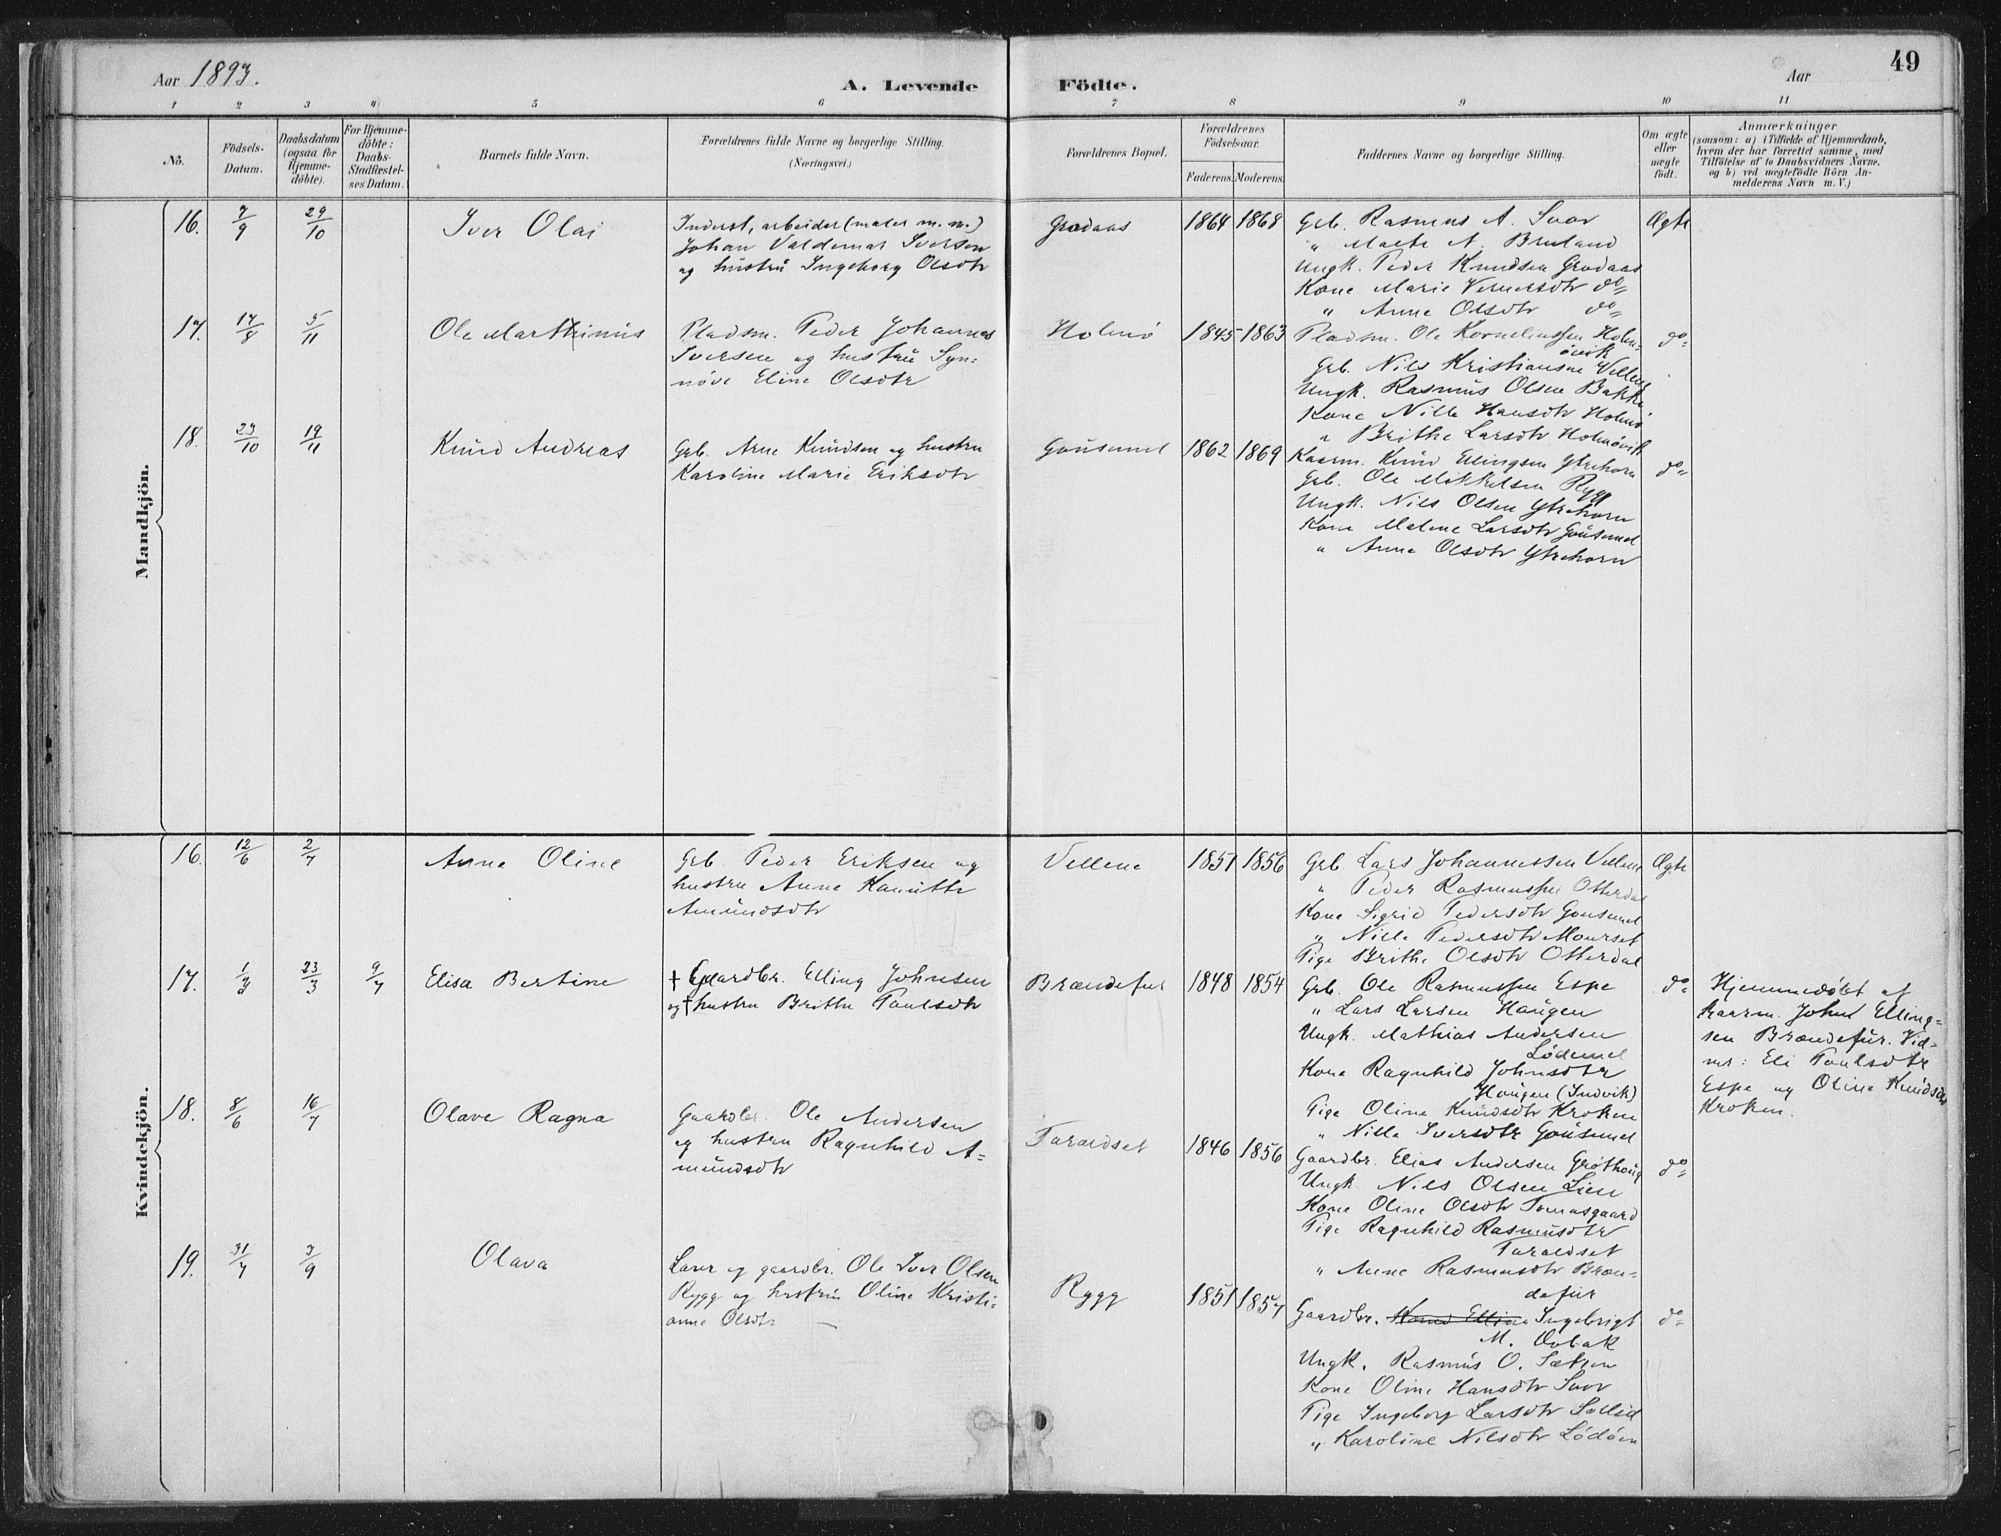 Aar 1893.
A. Levende Födte.
Aar
49
1 2 3 4 5 6 7 8 9 10 11
No.
Födsels-Datum.
Daabsdatum (ogsaa for Hjemme-döbte).
For Hjemme-döbte: Daabs-Stadfæstel-ses Datum.
Barnets fulde Navn.
Forældrenes fulde Navne og borgerlige Stilling. (Næringsvei.)
Forældrenes Bopæl.
Forældrenes Födselsaar.
Faderens. Moderens.
Faddernes Navne og borgerlige Stilling.
Om ægte eller uægte födt.
Anmærkninger
(saasom: a) i Tilfælde af Hjemmedaab, hvem der har forrettet samme, med Tilföielse af to Daabsvidners Navne, og b) ved uægtefödte Börn An-melderens Navn m. V.)
Mandkjön.
16. 7/9 29/10 Iver Olai
Inderst, arbeider (maler m. m.)
Johan Valdemar Iversen
og hustru Ingeborg Olsdtr
Grodaas 1864 1868
Grb. Rasmus A. Svor
" Malte A. Bruland
Ungk. Peder Knudsen Grodaas
Kone Marie Vernersdtr do=
" Anne Olsdtr do=
Ægte
17. 17/8 5/11 Ole Marthinus
Pladsm. Peder Johannes
Iversen og hustru Syn=
növe Eline Olsdtr
Holmö 1845 1863
Pladsm. Ole Korneliussen Holm=
övik
Grb. Nils Kristiansen Vellene
Ungk. Rasmus Olsen Bakke
Kone Nille Hansdtr Holmö
" Brithe Larsdtr Holmövik
do=
18. 23/10 19/11 Knud Andreas
Grb. Arne Knudsen og hustru
Karoline Marie Eriksdtr
Gausemel 1862 1869
Kaarm. Knud Ellingsen Ytrehorn
Grb. Ole Mikkelsen Rygg
Ungk. Nils Olsen Ytrehorn
Kone Malene Larsdtr Gausemel
" Anne Olsdtr Ytrehorn
do=
Kvindekjön.
16. 12/6 2/7 Anne Oline
Grb. Peder Eriksen og
hustru Anne Hanutte
Amundsdtr
Vellene 1851 1856
Grb. Lars Johannessen Vellene
" Peder Rasmussen Otterdal
Kone Sigrid Pedersdtr Gousemel
" Nille Pedersdtr Maurset
Pige Brithe Olsdtr Otterdal
Ægte
17. 1/2 23/3 9/7 Elisa Bertine
+ Gaardbr. Elling Johnsen
og + hustru Brithe Paulsdtr
Brændefur 1848 1854
Grb. Ole Rasmussen Espe
" Lars Larsen Haugen
Ungk. Mathias Andersen
Lödemel
Kone Ragnhild Johnsdtr
Haugen (Indvik)
Pige Oline Knudsdtr Kroken
" Nille Iversdtr Gausemel
do=
Hjemmedöbt af
kaarm. John Elling=
sen Brændefur. Vid=
ner: Eli Paulsdtr
Espe og Oline Knudsdtr
Kroken.
18. 8/6 16/7 Olave Ragna
Gaardbr. Ole Andersen
og hustru Ragnhild A=
mundsdtr
Taraldset 1846 1856
Gaardbr. Elias Andersen Gröthaug
Ungk. Nils Olsen Lien
Kone Oline Olsdtr Tomasgaard
Pige Ragnhild Rasmusdtr
Taraldset
" Anne Rasmusdtr Bræn=
defur
do=
19. 31/7 3/9 Olava
Lærer og gaardbr. Ole Iver Olsen
Rygg og hustru Oline Kristi=
anne Olsdtr
Rygg 1851 1857
Gaardbr. Ingebrigt
M. Ovbak
Ungk. Rasmus O. Sætren
Kone Oline Hansdtr Svor
Pige Ingeborg Larsdtr Sollid
" Karoline Nilsdtr Lödöen
do=